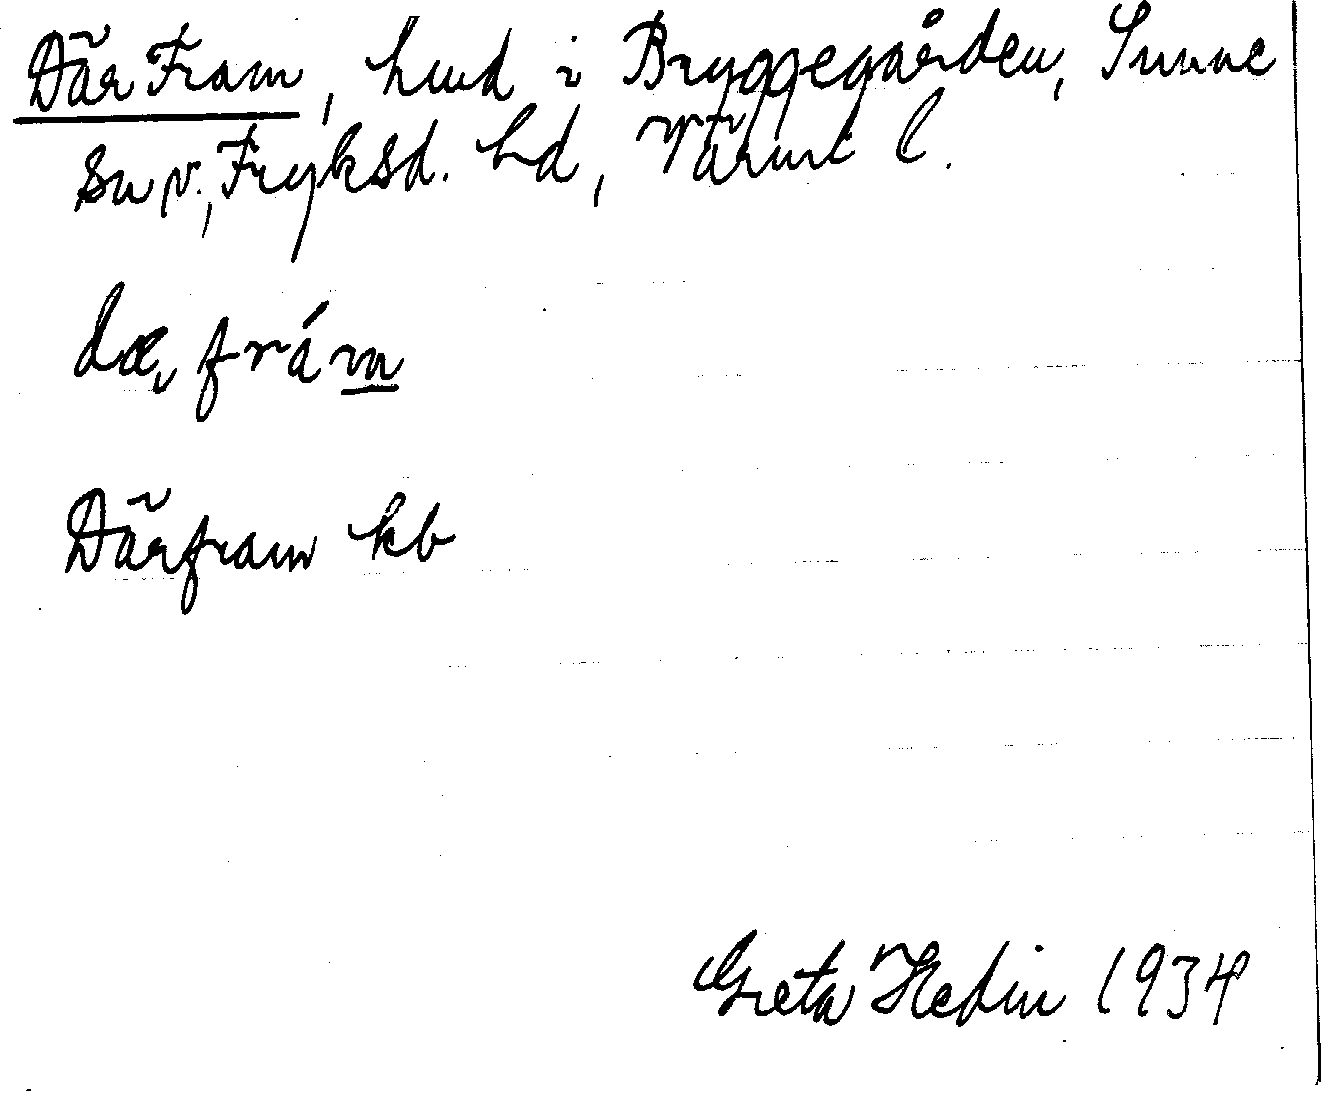 Där Fram, hmd i Bryggegården, Sunne
sn v., Fryksd. hd, Värml l.
dæ, frám
Därfram kb
Greta Hedin 1934